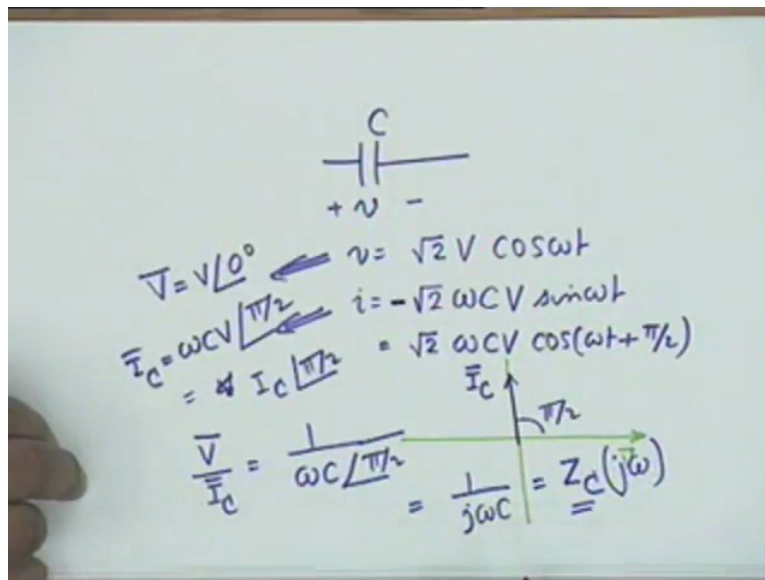 C
+ v −
V̅ = V∠0° ⟸ v = √2 V cosωt
I̅_C = ωCV∠π/2 ⟸ i = −√2 ωCV sinωt
= I_C∠π/2 = √2 ωCV cos(ωt + π/2)
I̅_C
π/2
V̅/I̅_C = 1/(ωC∠π/2)
= 1/(jωC) = Z_C(jω)